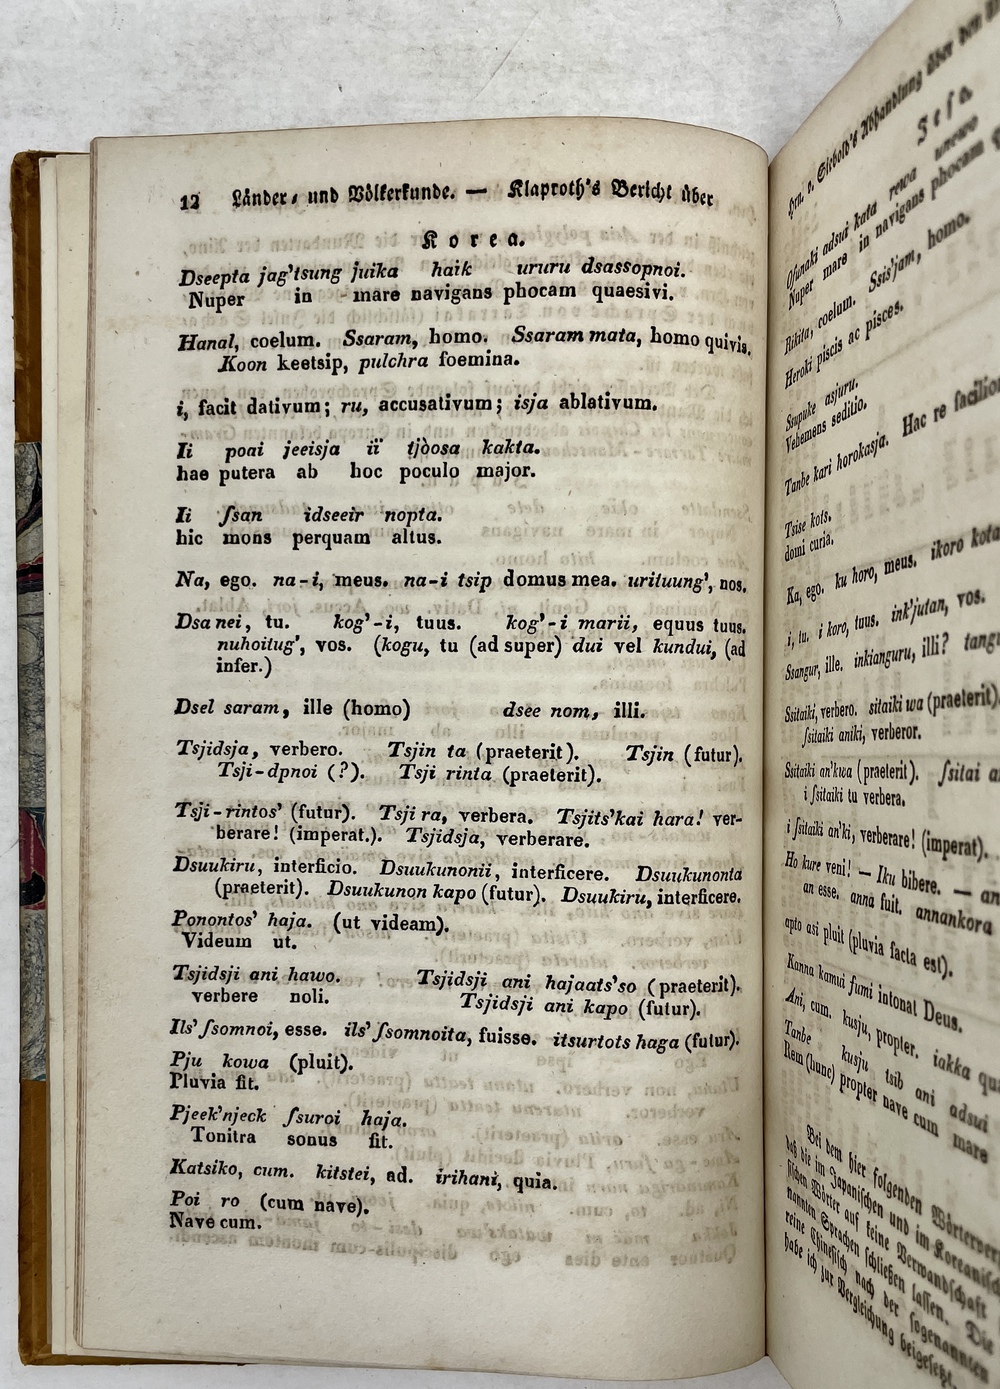 12 Länder- und Völkerkunde. — Klaproth's Bericht über
Korea.
Dseepta jag'tsung juika haik ururu dsassopnoi.
Nuper in mare navigans phocam quaesivi.
Hanal, coelum. Ssaram, homo. Ssaram mata, homo quivis.
Koon keetsip, pulchra foemina.
i, facit dativum; ru, accusativum; isja ablativum.
Ii poai jeeisja iï tjòosa kakta.
hae putera ab hoc poculo major.
Ii ſsan idseeir nopta.
hic mons perquam altus.
Na, ego. na-i, meus. na-i tsip domus mea. urituung', nos.
Dsa nei, tu. kog'-i, tuus. kog'-i marii, equus tuus.
nuhoitug', vos. (kogu, tu (ad super) dui vel kundui, (ad
infer.)
Dsel saram, ille (homo) dsee nom, illi.
Tsjidsja, verbero. Tsjin ta (praeterit). Tsjin (futur).
Tsji-dpnoi (?). Tsji rinta (praeterit).
Tsji-rintos' (futur). Tsji ra, verbera. Tsjits'kai hara! ver-
berare! (imperat.). Tsjidsja, verberare.
Dsuukiru, interficio. Dsuukunonii, interficere. Dsuukunonta
(praeterit). Dsuukunon kapo (futur). Dsuukiru, interficere.
Ponontos' haja. (ut videam).
Videum ut.
Tsjidsji ani hawo. Tsjidsji ani hajaats'so (praeterit).
verbere noli. Tsjidsji ani kapo (futur).
Ils' ſsomnoi, esse. ils' ſsomnoita, fuisse. itsurtots haga (futur).
Pju kowa (pluit).
Pluvia fit.
Pjeek'njeck ſsuroi haja.
Tonitra sonus fit.
Katsiko, cum. kitstei, ad. irihani, quia.
Poi ro (cum nave).
Nave cum.
Hrn. v. Siebold's Abhandlung über den
Jeſo.
Ofunaki adsui kata rewa unewo
Nuper mare in navigans phocam
Rikita, coelum. Ssis'jam, homo.
Heroki piscis ac pisces.
Ssupuke asjuru.
Vehemens seditio.
Tanbe kari horokasja. Hac re facilior
Tsise kots.
domi curia.
Ka, ego. ku horo, meus. ikoro kota
i, tu. i koro, tuus. ink'jutan, vos.
Ssangur, ille. inkianguru, illi? tangu
Ssitaiki, verbero. sitaiki wa (praeterit).
ſsitaiki aniki, verberor.
Ssitaiki an'kwa (praeterit). ſsitai a
i ſsitaiki tu verbera.
i ſsitaiki an'ki, verberare! (imperat).
Ho kure veni! — Iku bibere. — an
an esse. anna fuit. annankora
apto asi pluit (pluvia facta est).
Kanna kamui fumi intonat Deus.
Ani, cum. kusju, propter. iakka qu
Tanbe kusju tsib ani adsui
Rem (hanc) propter nave cum mare
Bei dem hier folgenden Wörterver
daß die im Japanischen und im Koreanisch
sischen Wörter auf keine Verwandschaft
nannten Sprachen schließen lassen. Die
reine Chinesisch nach der sogenannten
habe ich zur Vergleichung beigesetzt.